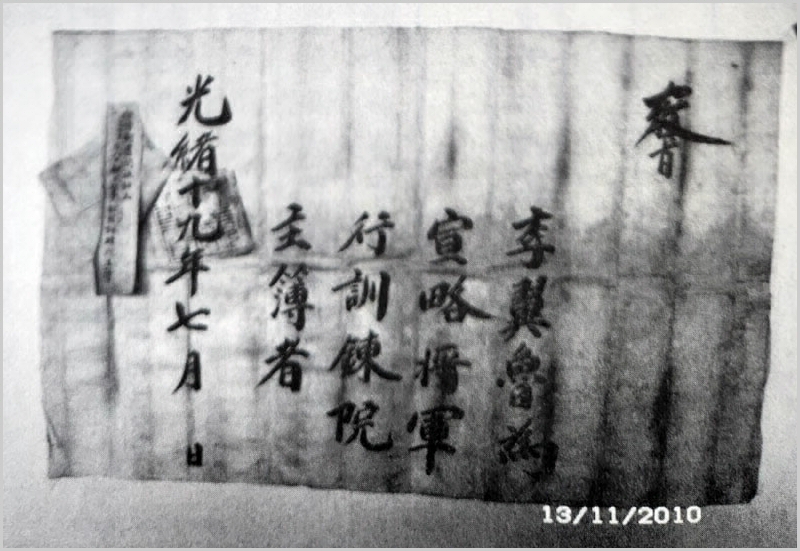 教旨
李翼魯爲
宣略將軍
行訓鍊院
主簿者
光緖十九年七月 日
13/11/2010